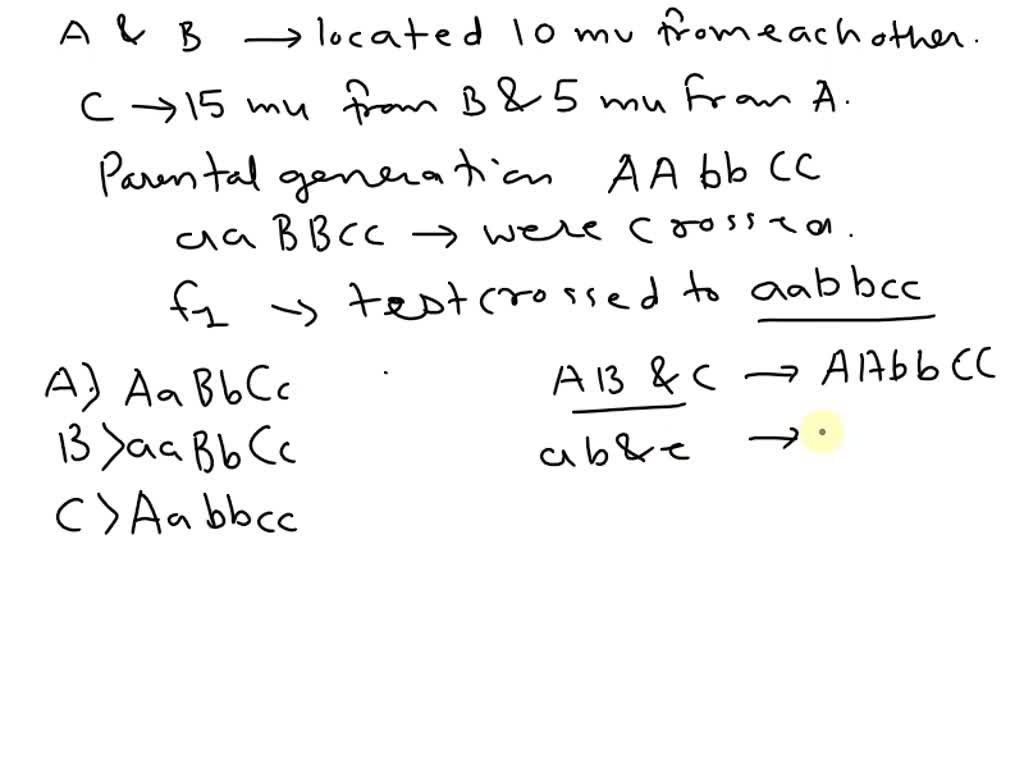 A & B → located 10 mu from each other.
C → 15 mu from B & 5 mu from A.
Parental generation AA bb CC
aa BBcc → were crossed.
f1 → testcrossed to aabbcc
A) AaBbCc
AB & C → AAbbCC
B > aaBbCc
ab & c →
C > Aabbcc